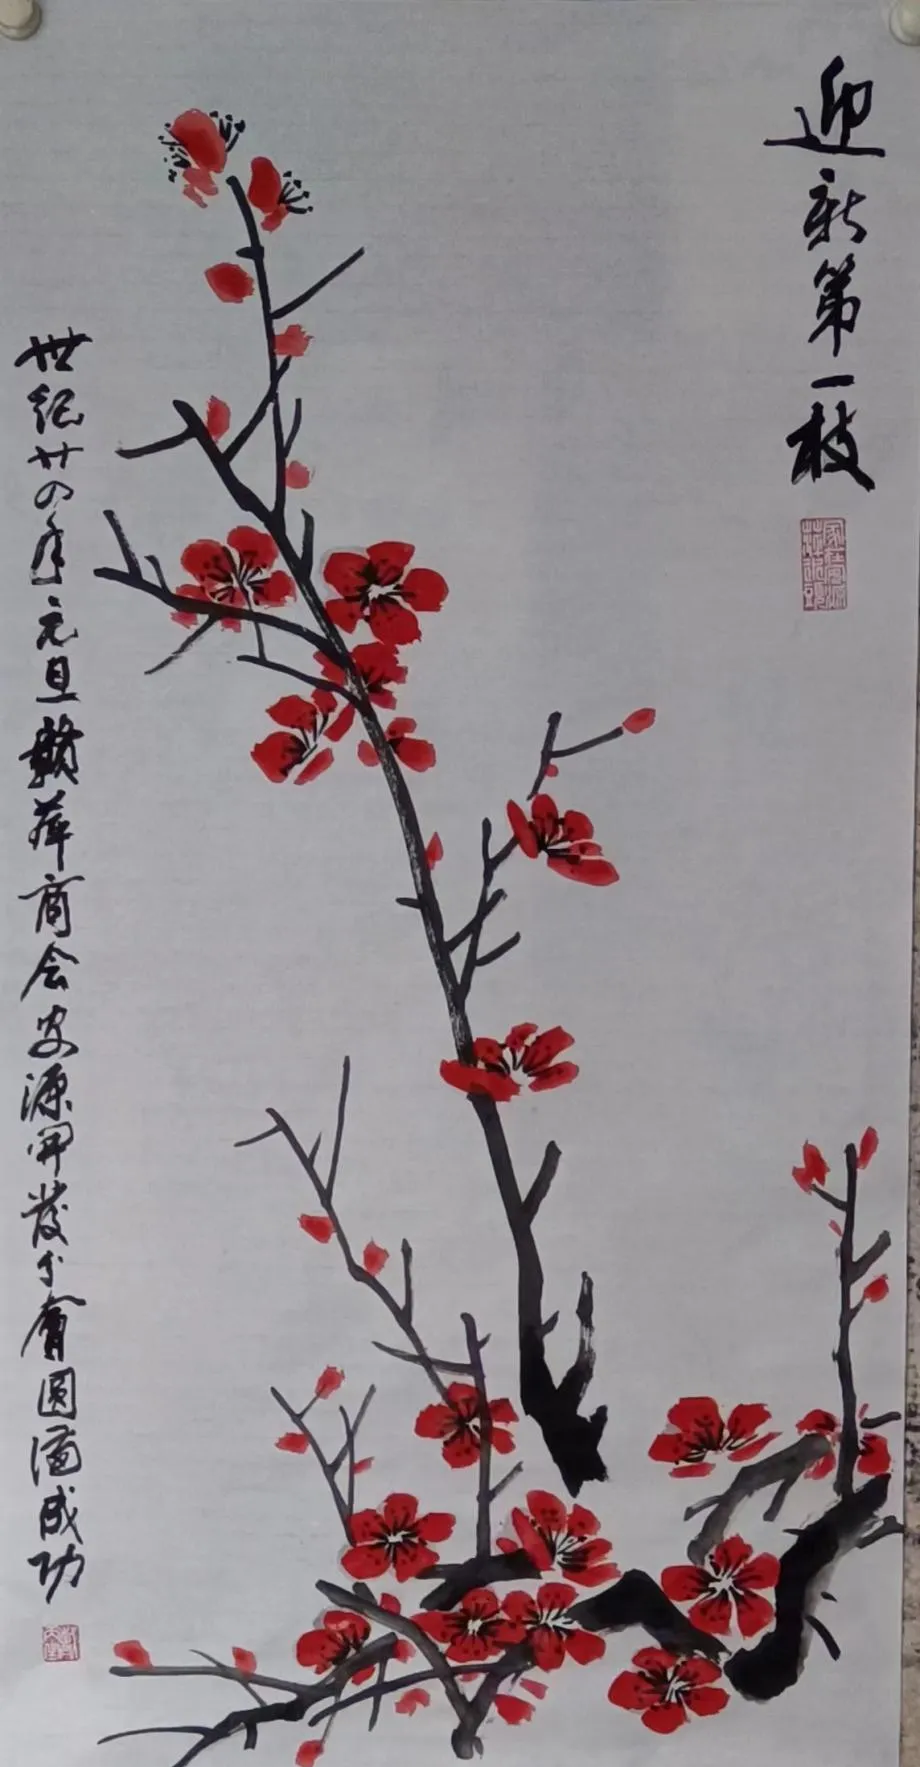 迎新第一枝
世纪廿四年元旦赣萍商会安源开发分会圆满成功